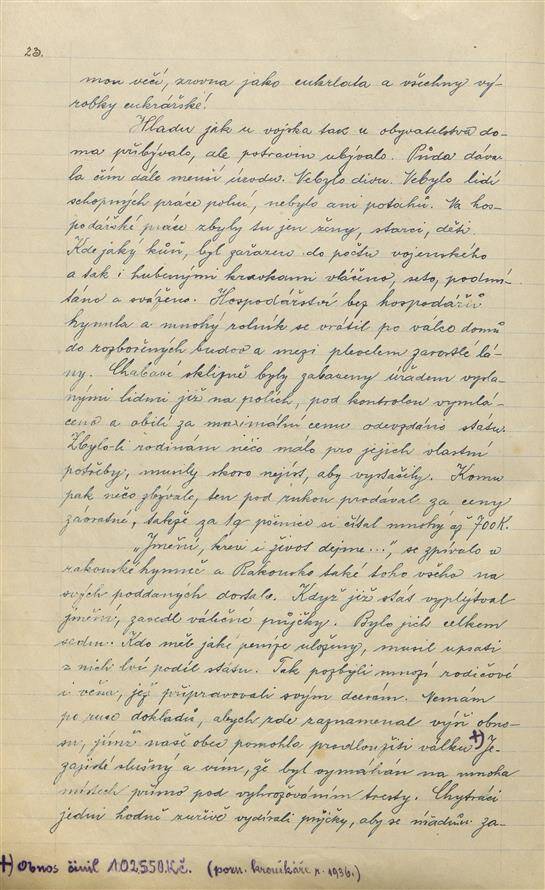 23.
mou věcí, zrovna jako cukrlada a všechny vý-
robky cukrářské!
Hladu jak u vojska tak u obyvatelstva do-
ma přibývalo, ale potravin ubývalo. Půda dáva-
la čím dále menší úrodu. Nebylo divu. Nebylo lidí
schopných práce polní, nebylo ani potahů. Na hos-
podářské práce zbyly tu jen ženy, starci, děti.
Kde jaký kůň, byl zařazen do počtu vojenského
a tak i hubenými kravkami vláčeno, seto, podmí-
táno a sváženo. Hospodářství bez hospodářů
hynula a mnohý rolník se vrátil po válce domů
do rozbořených budov a mezi plevelem zarostlé lá-
ny. Chabavé sklizně byly zabaveny úřadem vysla-
nými lidmi již na polích, pod kontrolou vymlá-
ceno a obilí za maximální cenu odevzdáno státu.
Zbylo-li rodinám něco málo pro jejich vlastní
potřeby, musily skoro nejíst, aby vystačily. Komu
pak něco zbývalo, ten pod rukou prodával za ceny
závratné, takže za 1q pšenice si čítal mnohý až 700K.
„Jmění, krev i život dejme...", se zpívalo v
rakouské hymně a Rakousko také toho všeho na
svých poddaných dostalo. Když již stát vyplýtval
jmění, zavedl válečné půjčky. Bylo jich celkem
sedm. Kdo měl jaké peníze uloženy, musil upsati
z nich lví podíl státu. Tak pozbyli mnozí rodičové
i věna, jež připravovali svým dcerám. Nemám
po ruce dokladů, abych zde zaznamenal výši obno-
su, jímž naše obec pomohla prodloužiti válku +) Je
zajisté slušný a vím, že byl vymáhán na mnoha
místech přímo pod vyhrožováním tresty. Chytráci
jedni hodně zuřivě vydírali půjčky, aby se úřadům za-
+) Obnos činil 102.550.Kč. (pozn. kronikáře r. 1936.)